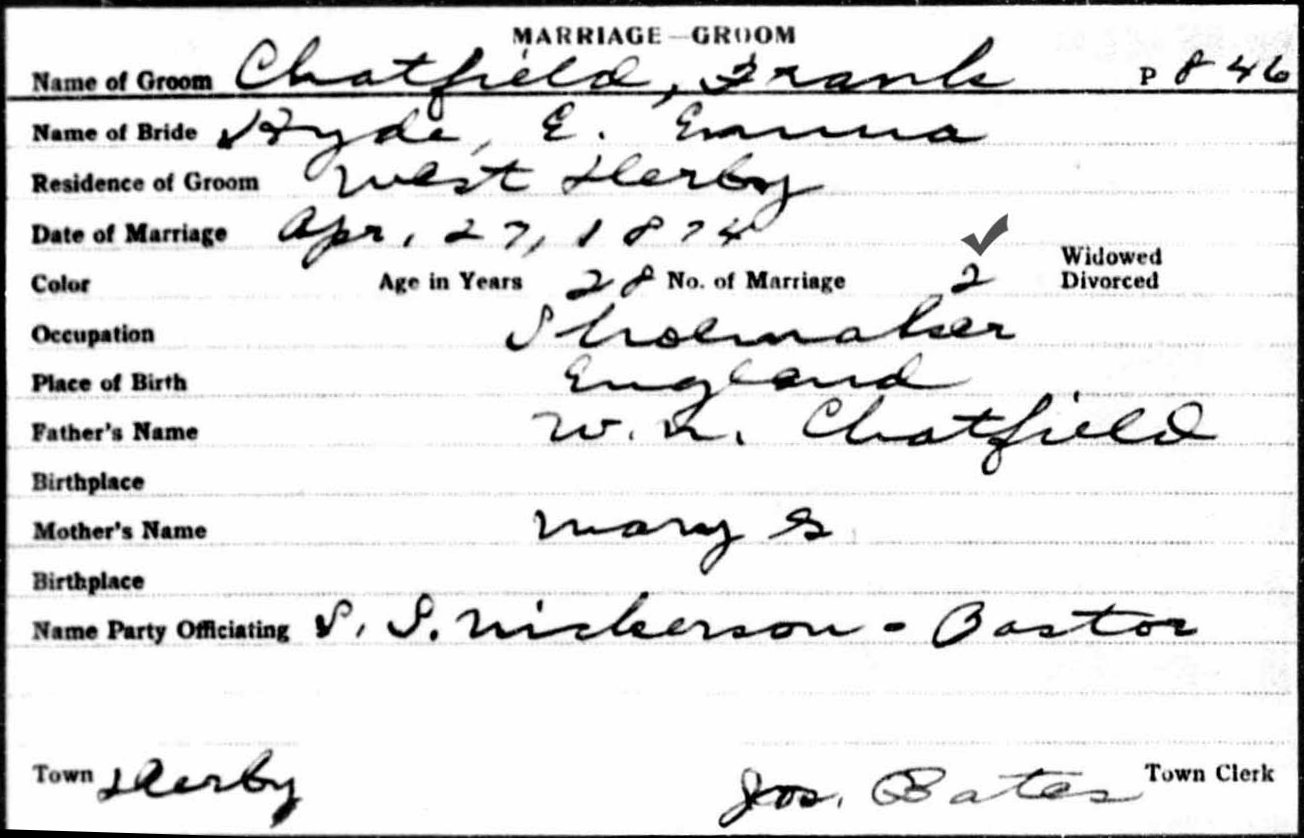 MARRIAGE—GROOM
Name of Groom Chatfield, Frank P 846
Name of Bride Hyde, E. Emma
Residence of Groom West Derby
Date of Marriage Apr. 27, 1874
Color Age in Years 28 No. of Marriage 2 Widowed Divorced
Occupation Shoemaker
Place of Birth England
Father's Name W. N. Chatfield
Birthplace
Mother's Name Mary S
Birthplace
Name Party Officiating S. S. Nickerson - Pastor
Town Derby Jos. Bates Town Clerk